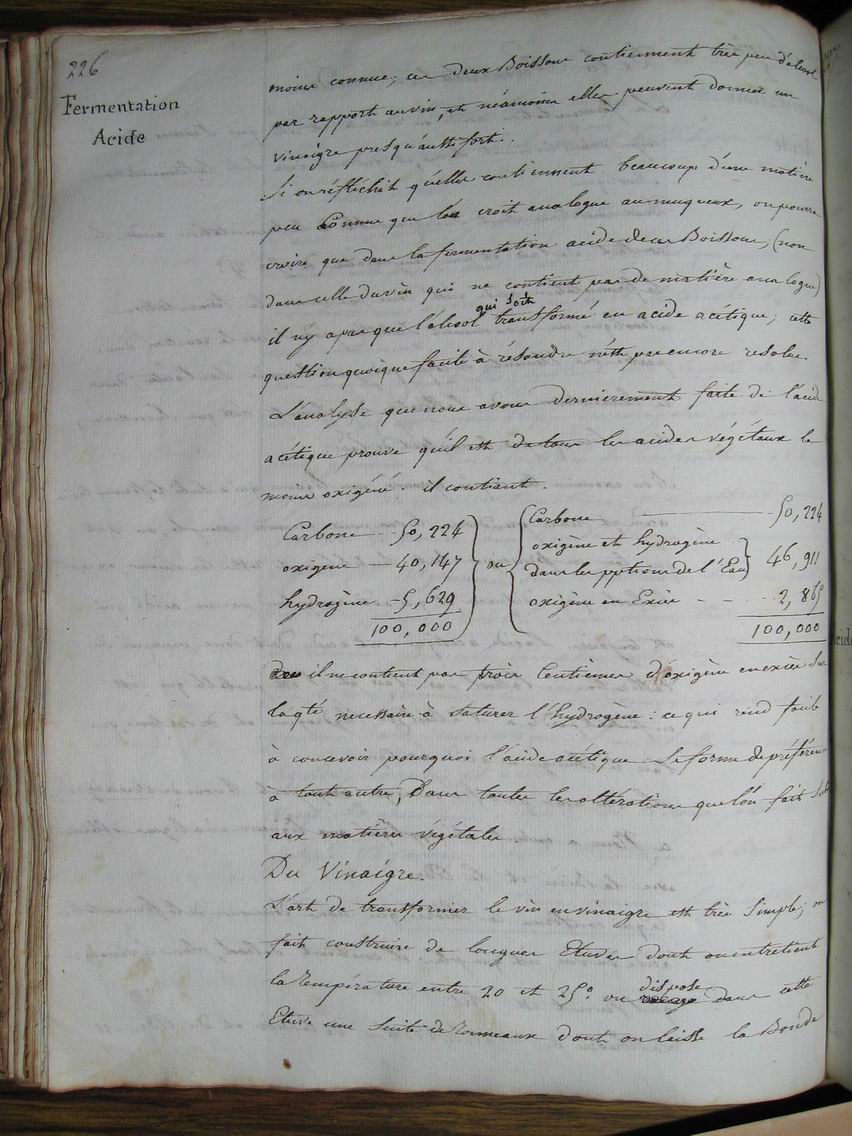 226
Fermentation
Acide
moins connue; ces deux Boissons contiennent très peu d'alcool
par rapport au vin, et néamoins elles peuvent donner un
vinaigre presqu'aussi fort.
Si on réfléchit qu'elles contiennent beaucoup d'une matière
peu connue que l'on croit analogue au muqueux, on pourra
croire que dans la fermentation acide de ces Boissons, (non
dans celle du vin qui ne contient pas de matière analogue)
il n'y a pas que l'alcool qui soit transformé en acide acétique; cette
question quoique facile à résoudre n'est pas encore resolue.
L'analyse que nous avons dernièrement faite de l'acide
acétique prouve qu'il est de tous les acides végétaux le
moins oxigéné. il contient.
Carbone - 50,224
oxigène - 40,147
hydrogène - 5,629
100,000
ou
Carbone - 50,224
oxigène et hydrogène
dans les pptions de l'Eau 46,911
oxigène en Excès - 2,865
100,000
il ne contient pas trois Centièmes d'oxigène en excès Sur
la qté necessaire à saturer l'hydrogène: ce qui rend facile
à concevoir pourquoi l'acide acétique se forme de préférence
à tout autre, Dans toutes les altérations que l'on fait Subir
aux matières végétales.
Du Vinaigre.
L'art de transformer le vin en vinaigre est très Simple; on
fait construire de longues Etuves dont on entretient
la température entre 20 et 25°. on dispose dans cette
Etuve une Suite de tonneaux dont on laisse la Bonde